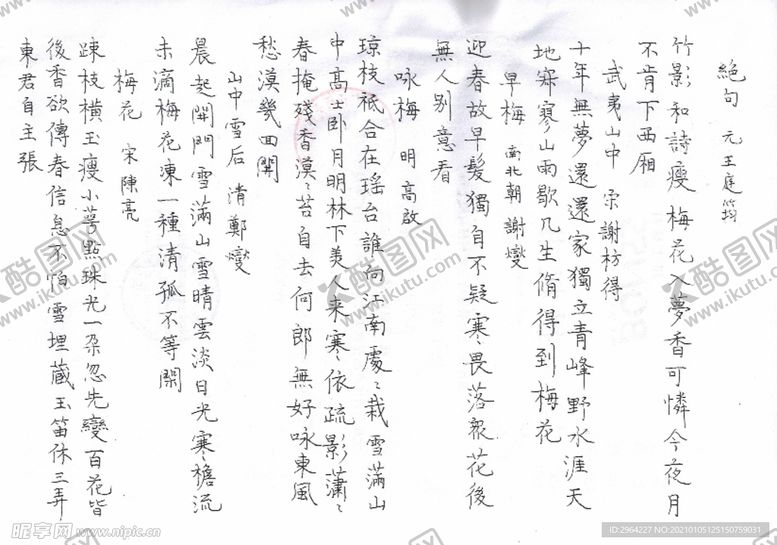 絕句 元 王庭筠
竹影和詩瘦 梅花入夢香可憐今夜月
不肯下西廂
武夷山中 宋 謝枋得
十年無夢還還家獨立青峰野水涯天
地寂寥山雨歇几生脩得到梅花
早梅 南北朝 謝燮
迎春故早髮獨自不疑寒畏落衆花後
無人别意看
咏梅 明 高啟
琼枝祗合在瑶台誰向江南處〻栽雪滿山
中高士卧月明林下美人来寒依疏影瀟〻
春掩殘香漠〻苔自去何郎無好咏東風
愁漠幾回開
山中雪后 清 鄭燮
晨起開門雪滿山雪晴雲淡日光寒檐流
未滴梅花凍一種清孤不等閑
梅花 宋 陳亮
疎枝横玉瘦小萼點珠光一朶忽先變百花皆
後香欲傳春信息不怕雪埋蔵玉笛休三弄
東君自主張
酷图网
www.ikutu.com
昵享网 www.nipic.cn
ID:2964227 NO:20210105125150759031